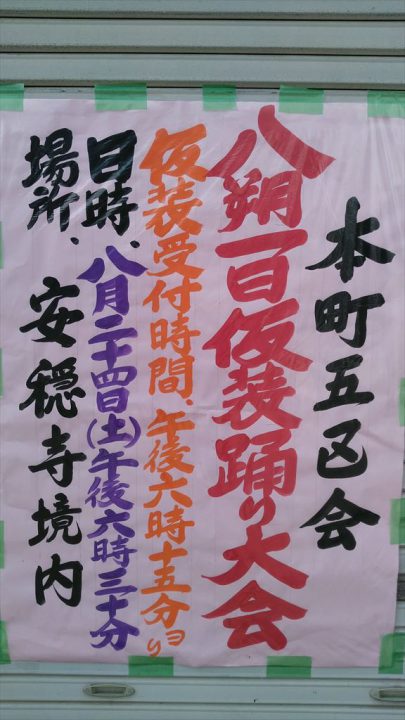 本町五区会
八朔一百仮装踊り大会
仮装受付時間、午後六時十五分ヨリ
日時、八月二十四日(土)午後六時三十分
場所、安穏寺境内